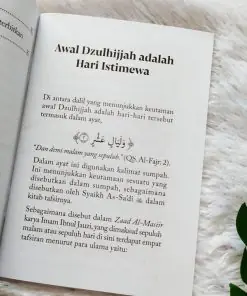 Awal Dzulhijjah adalah
Hari Istimewa
Di antara dalil yang menunjukkan keutamaan
awal Dzulhijjah adalah hari-hari tersebut
termasuk dalam ayat,
﴿ وَلَيَالٍ عَشْرٍ ﴾
“Dan demi malam yang sepuluh.” (QS. Al-Fajr: 2).
Dalam ayat ini digunakan kalimat sumpah.
Ini menunjukkan keutamaan sesuatu yang
disebutkan dalam sumpah, sebagaimana
disebutkan oleh Syaikh As-Sa'di dalam
kitab tafsirnya.
Sebagaimana disebut dalam Zaad Al-Masiir
karya Imam Ibnul Jauzi, yang dimaksud sepuluh
malam atau sepuluh hari di sini terdapat empat
tafsiran menurut para ulama yaitu: